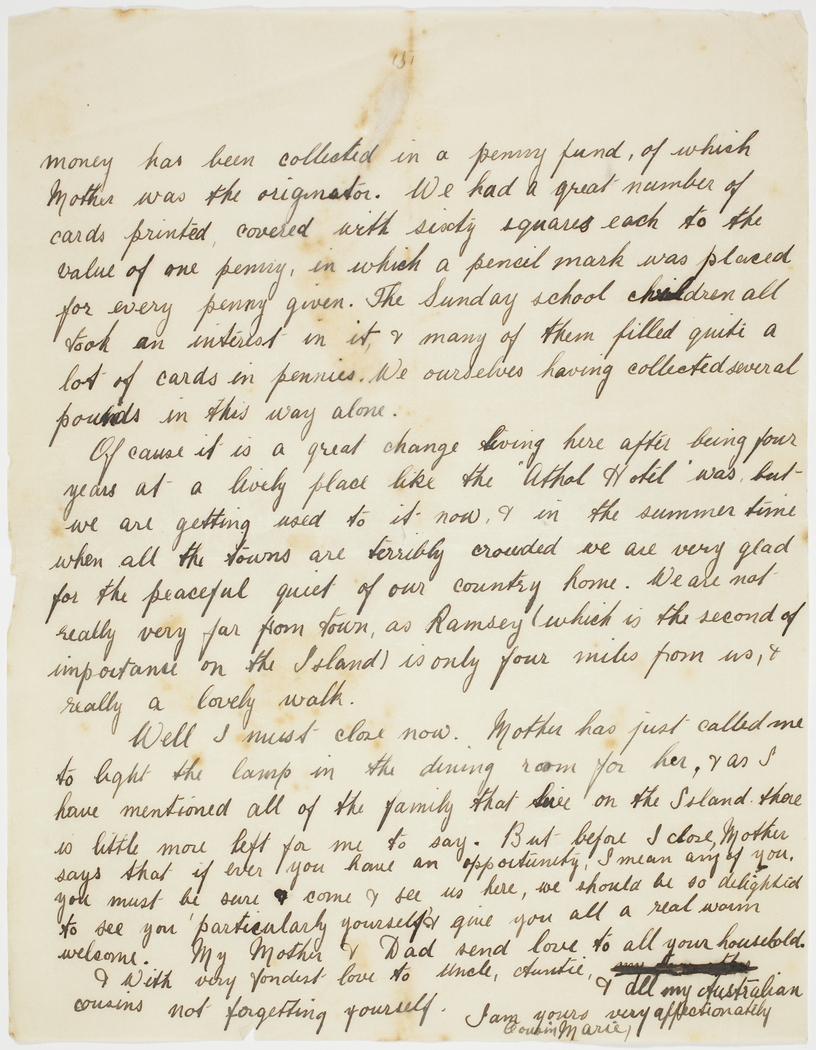 (5)
money has been collected in a penny fund, of which
Mother was the originator. We had a great number of
cards printed, covered with sixty squares each to the
value of one penny, in which a pencil mark was placed
for every penny given. The Sunday school children all
took an interest in it, & many of them filled quite a
lot of cards in pennies. We ourselves having collected several
pounds in this way alone.
Of cause it is a great change living here after being four
years at a lively place like the "Athol Hotel" was, but
we are getting used to it now, & in the summer time
when all the towns are terribly crowded we are very glad
for the peaceful quiet of our country home. We are not
really very far from town, as Ramsey (which is the second of
importance on the Island) is only four miles from us, &
really a lovely walk.
Well I must close now. Mother has just called me
to light the lamp in the dining room for her, & as I
have mentioned all of the family that live on the Island there
is little more left for me to say. But before I close, Mother
says that if ever you have an opportunity, I mean any of you,
you must be sure & come & see us here, we should be so delighted
to see you particularly yourself & give you all a real warm
welcome. My Mother & Dad send love to all your household.
& With very fondest love to Uncle, Auntie,
& all my Australian
cousins not forgetting yourself. I am yours very affectionately
Cousin Marie,